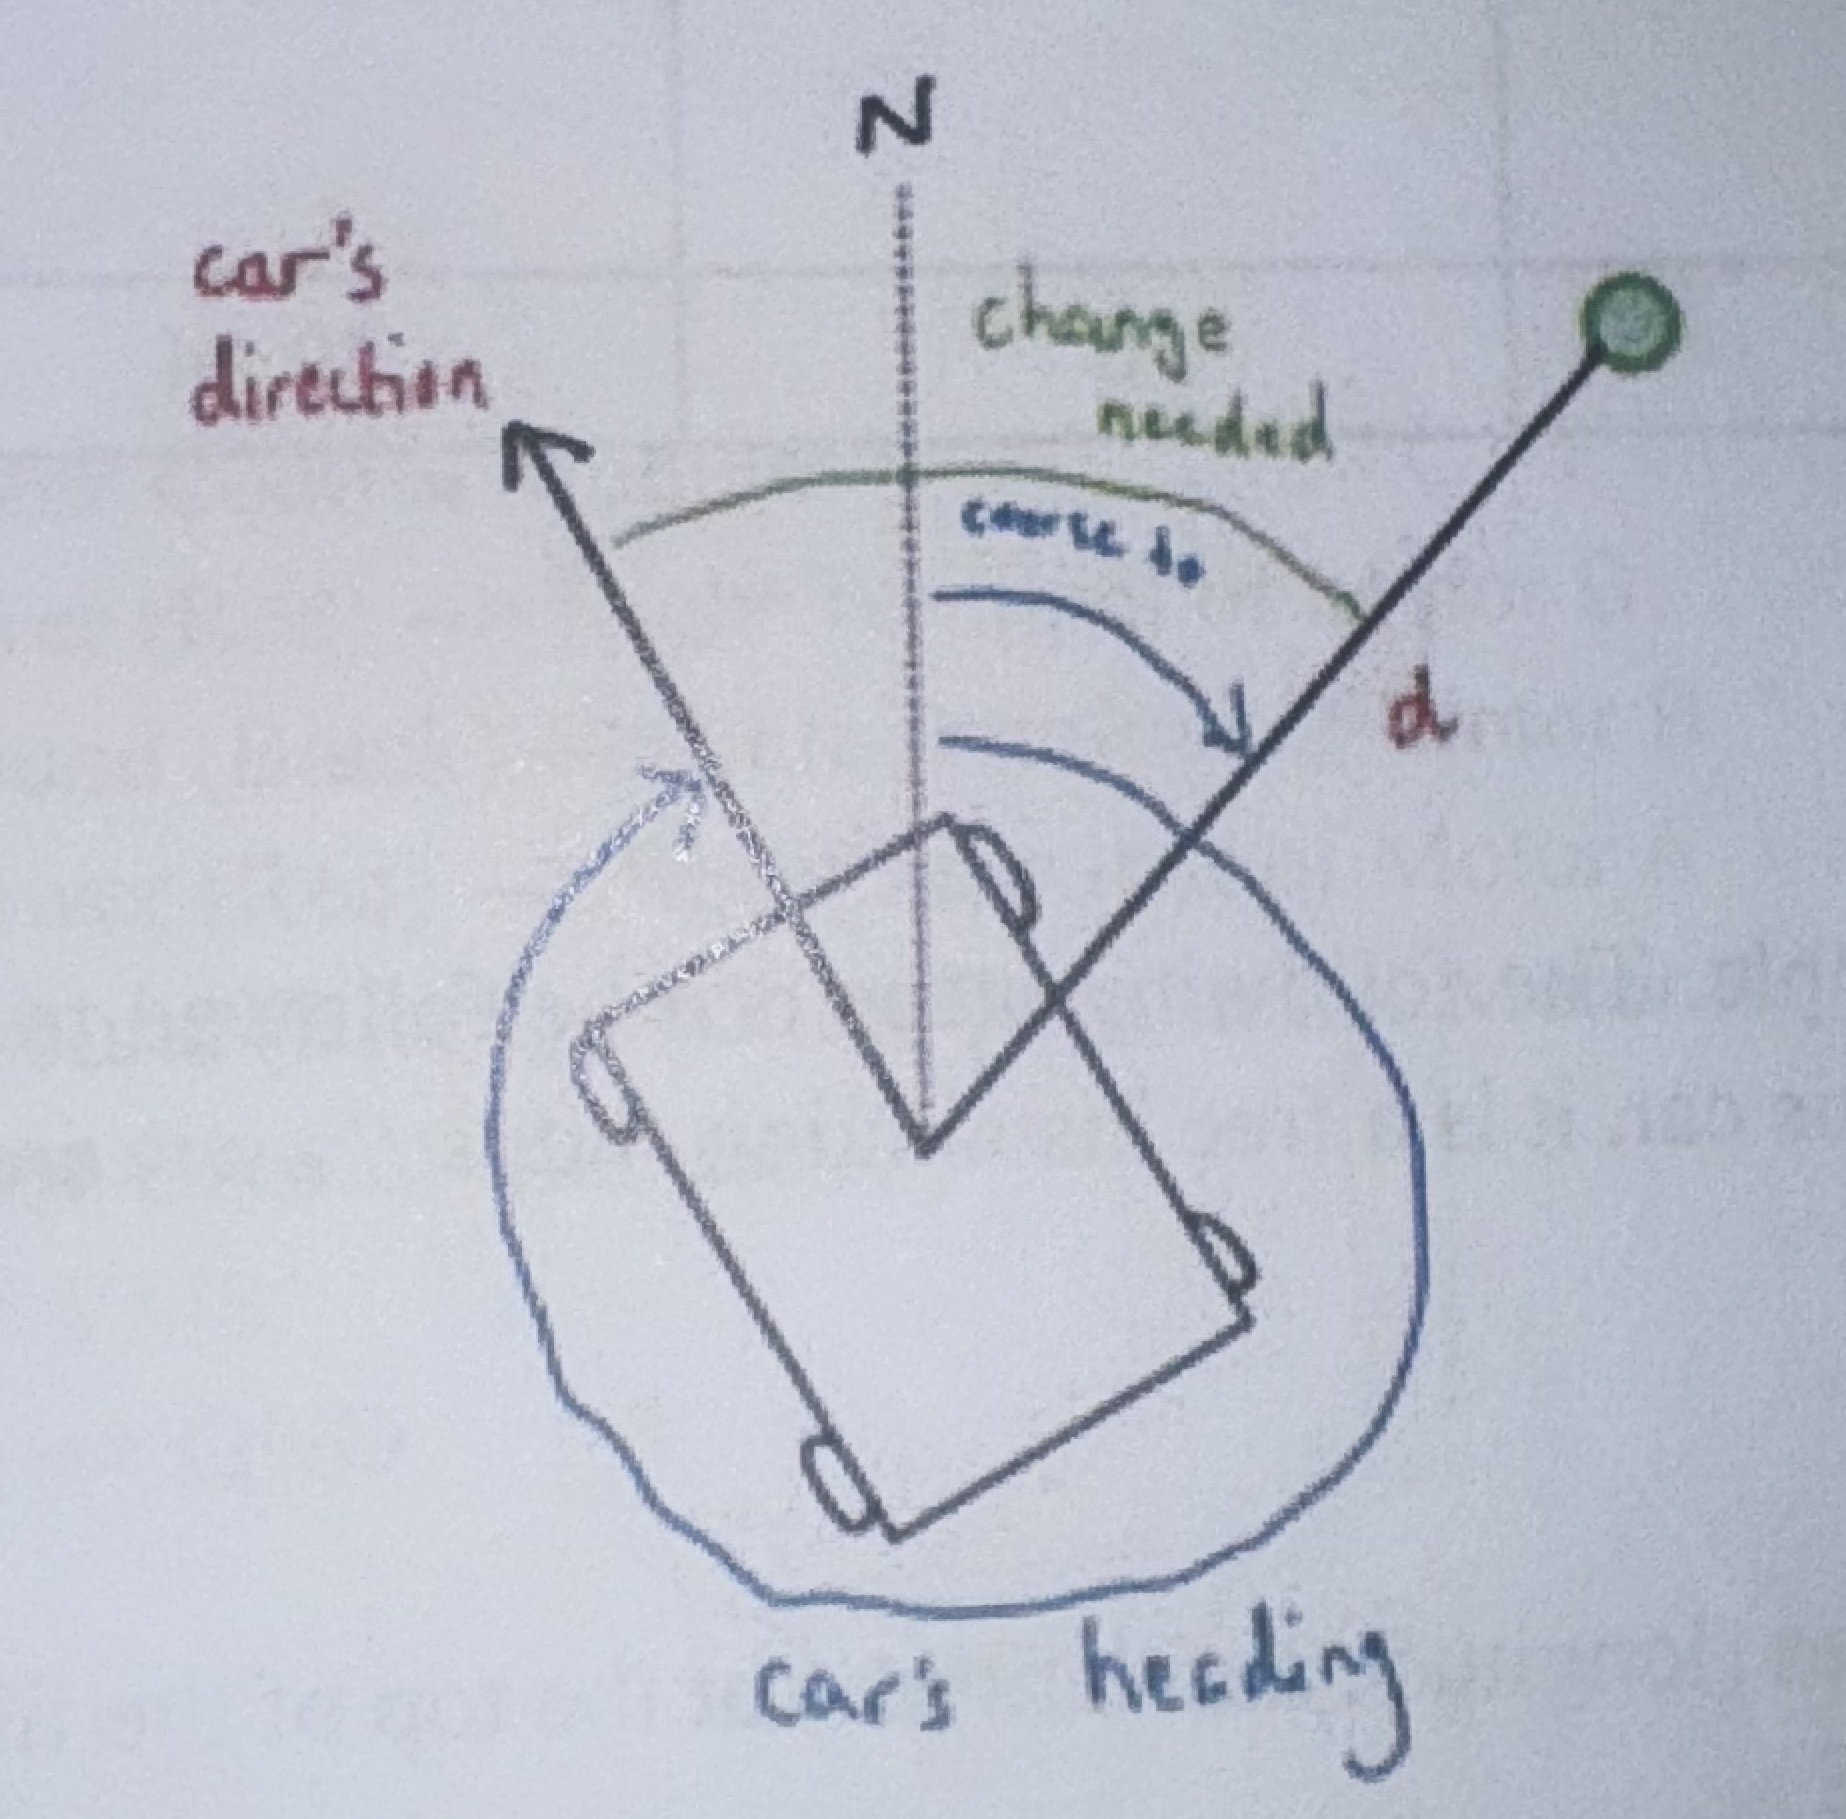 N
car's
direction
change
needed
course to
d
car's heading